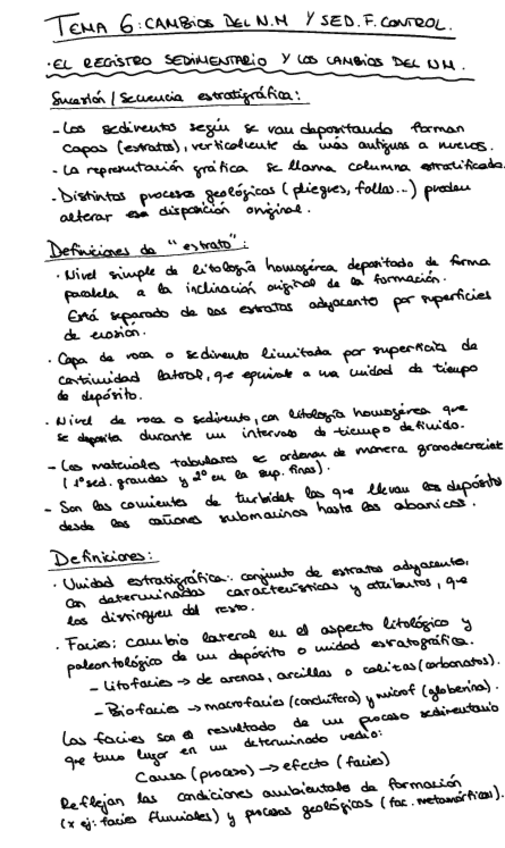 TEMA 6: CAMBIOS DEL N.M Y SED. F. CONTROL.
· EL REGISTRO SEDIMENTARIO Y LOS CAMBIOS DEL NM.
Sucesión / Secuencia estratigráfica:
- Los sedimentos según se van depositando forman
capas (estratos), verticalmente de más antiguos a nuevos.
- La representación gráfica se llama columna estratificada.
- Distintos procesos geológicos (pliegues, fallas...) pueden
alterar esa disposición original.
Definiciones de "estrato":
· Nivel simple de litología homogénea depositado de forma
paralela a la inclinación original de la formación.
Está separado de los estratos adyacentes por superficies
de erosión.
· Capa de roca o sedimento limitada por superficies de
continuidad lateral, que equivale a una unidad de tiempo
de depósito.
· Nivel de roca o sedimento, con litología homogénea que
se deposita durante un intervalo de tiempo definido.
- Los materiales tabulares se ordenan de manera granodecreciente
(1º sed. grandes y 2º en la sup. finas).
- Son las corrientes de turbidez las que llevan los depósitos
desde los cañones submarinos hasta los abanicos.
Definiciones:
· Unidad estratigráfica: conjunto de estratos adyacentes,
con determinadas características y atributos, que
los distinguen del resto.
· Facies: cambio lateral en el aspecto litológico y
paleontológico de un depósito o unidad estratográfica.
- Litofacies → de arenas, arcillas o calizas (carbonatos).
- Biofacies → macrofacies (conchífera) y microf (globerina).
Las facies son el resultado de un proceso sedimentario
que tuvo lugar en un determinado medio:
Causa (proceso) → efecto (facies)
Reflejan las condiciones ambientales de formación
(x ej: facies fluviales) y procesos geológicos (fac. metamórficas).